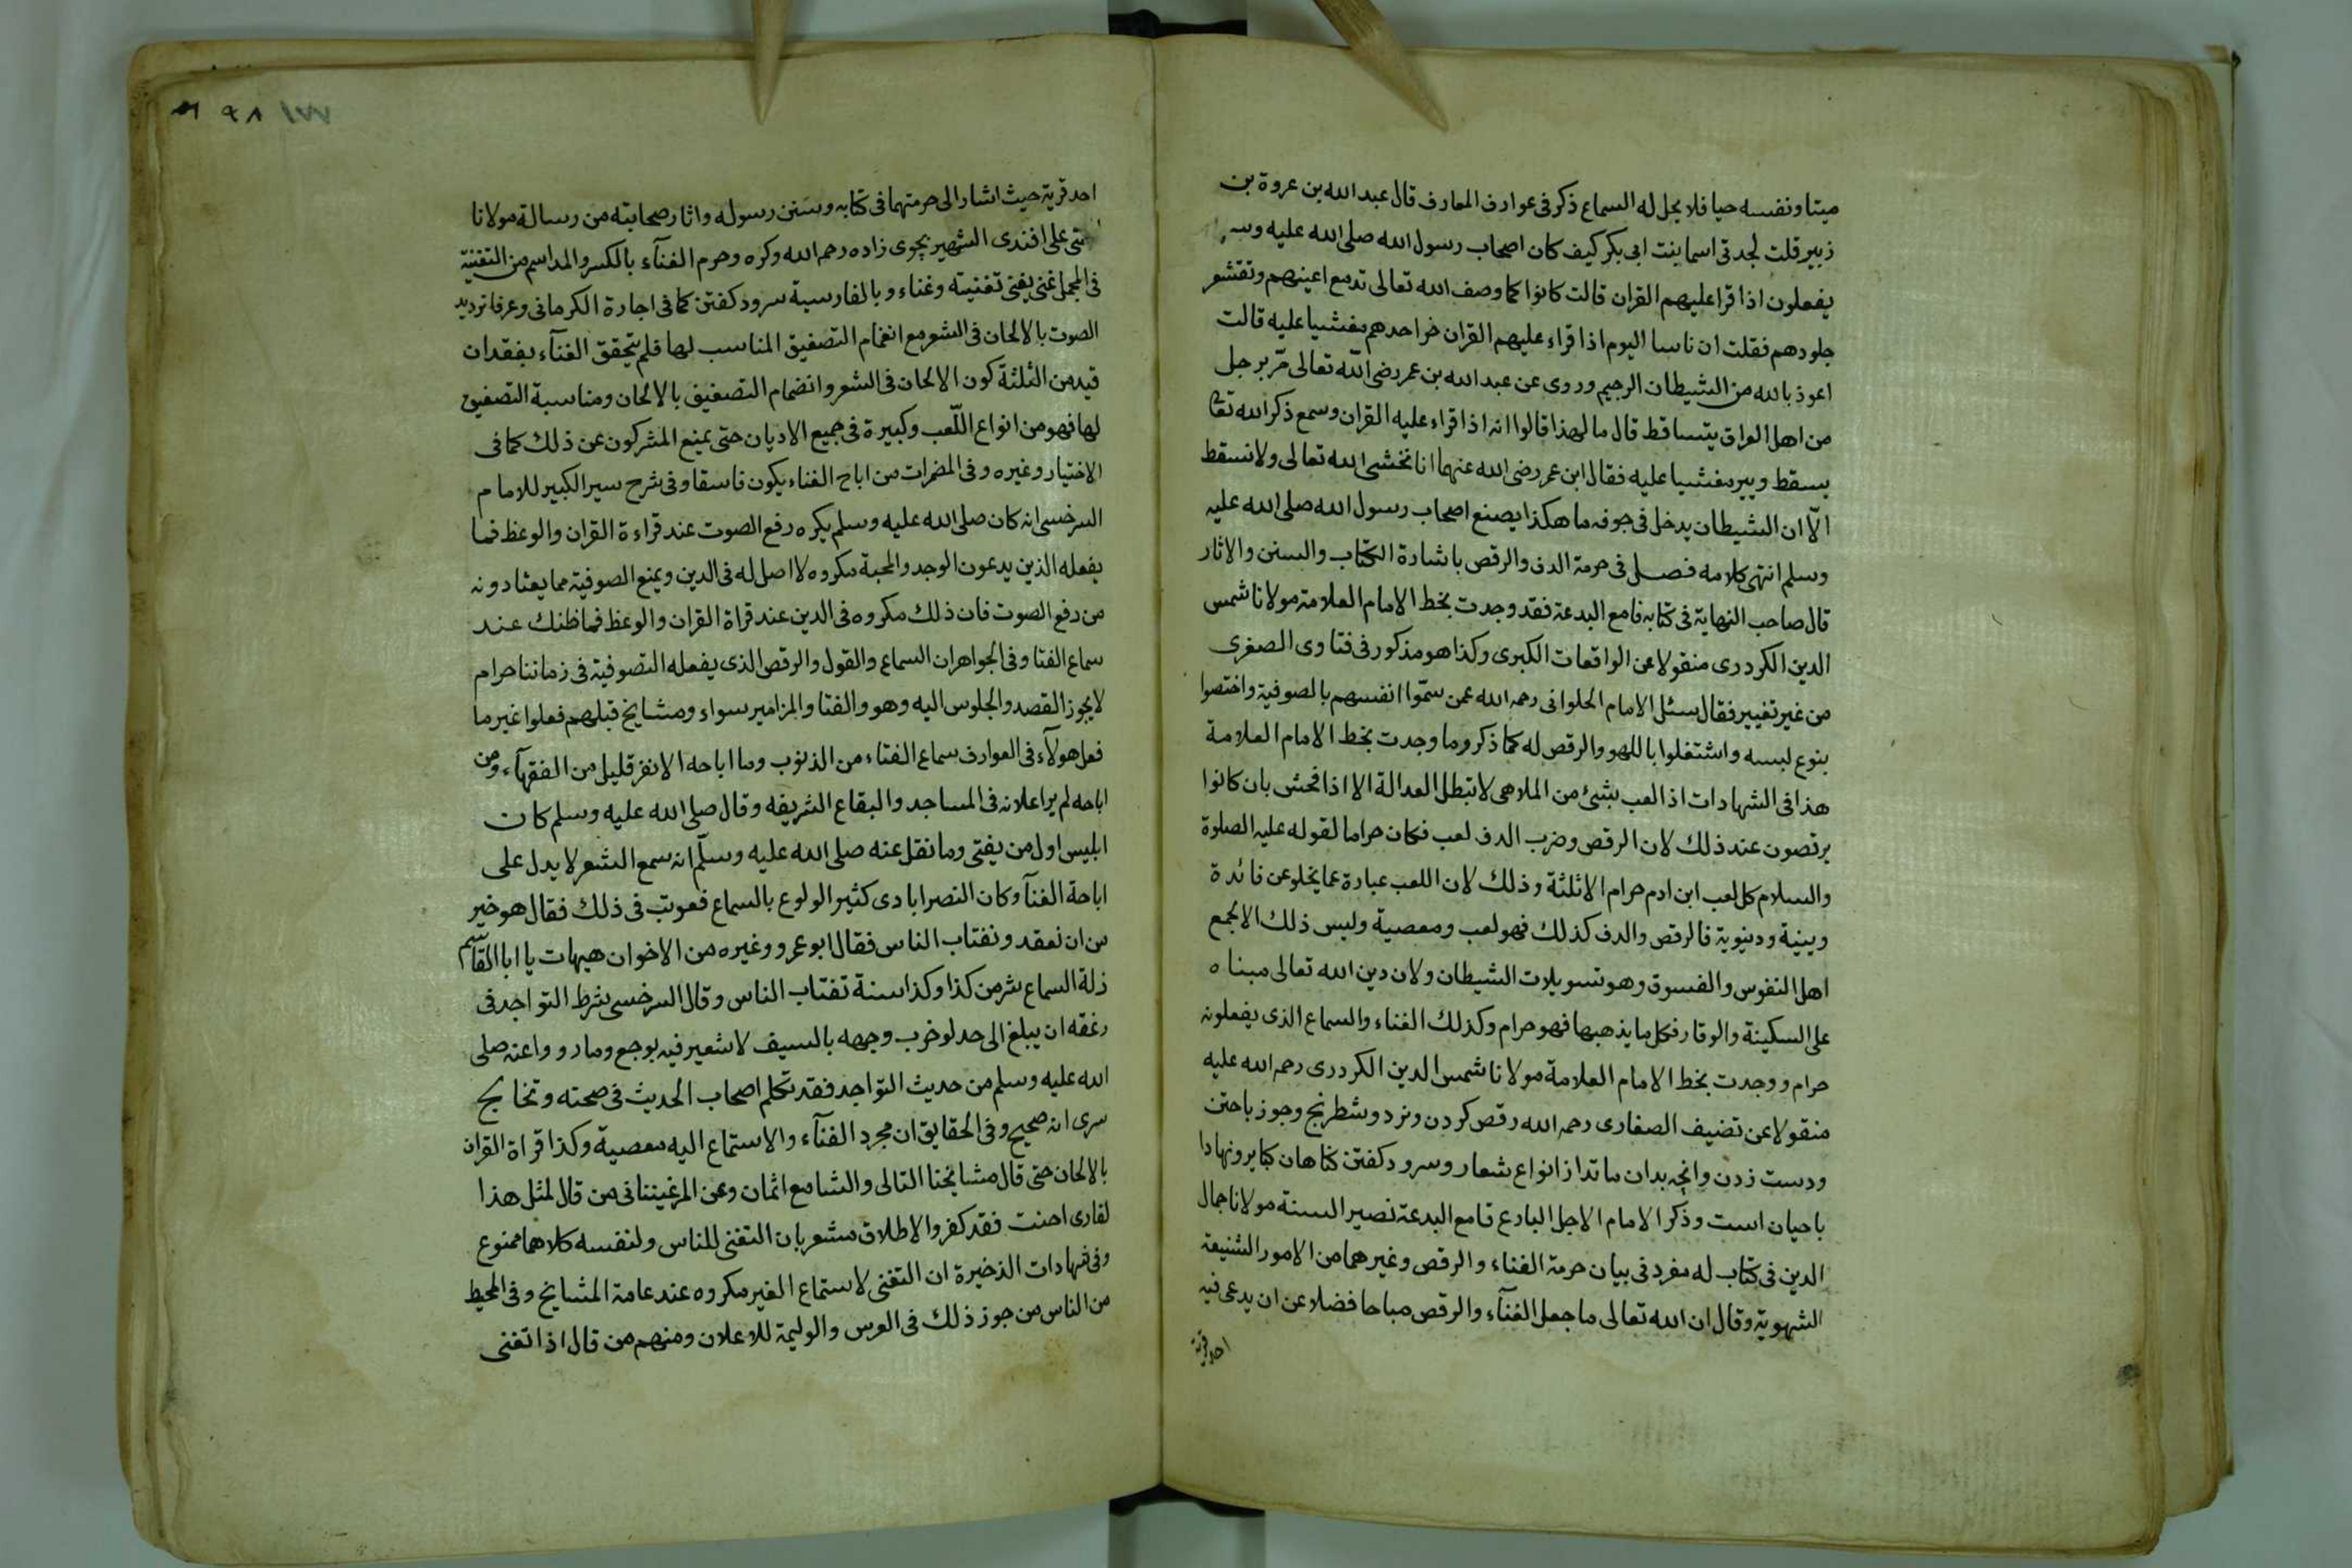 ميتا ونفسه حيا فلا يحل له السماع ذكر فى عوارف المعارف قال عبد الله بن عروة بن
زبير قلت لجدتى اسما بنت ابى بكر كيف كان اصحاب رسول الله صلى الله عليه وسلم
يفعلون اذا قرا عليهم القران قالت كانوا كما وصف الله تعالى تدمع اعينهم وتقشعر
جلودهم فقلت ان ناسا اليوم اذا قراء عليهم القران خر احدهم مغشيا عليه قالت
اعوذ بالله من الشيطان الرجيم وروى عن عبد الله بن عمر رضى الله تعالى مر برجل
من اهل العراق يتساقط قال ما لهذا قالوا انه اذا قراء عليه القران وسمع ذكر الله تعا
يسقط ويير مغشيا عليه فقال ابن عمر رضى الله عنهما انا نخشى الله تعالى ولا نسقط
الا ان الشيطان يدخل فى جوفه ما هكذا يصنع اصحاب رسول الله صلى الله عليه
وسلم انتهى كلامه فصل فى حرمة الدف والرقص باشارة الكتاب والسنن والاثار
قال صاحب النهاية فى كتابه قامع البدعة فقد وجدت بخط الامام العلامة مولانا شمس
الدين الكردرى منقولا عن الواقعات الكبرى وكذا هو مذكور فى فتاوى الصغرى
من غير تغيير فقال سئل الامام الحلوانى رحمه الله عمن سموا انفسهم بالصوفية واختصوا
بنوع لبسه واشتغلوا باللهو والرقص له كما ذكر وما وجدت بخط الامام العلامة
هذا فى الشهادات اذا لعب بشئ من الملاهى لا تبطل العدالة الا اذا فحش بان كانوا
يرقصون عند ذلك لان الرقص وضرب الدف لعب فكان حراما لقوله عليه الصلوة
والسلام كل لعب ابن ادم حرام الا ثلثة وذلك لان اللعب عبارة عما يخلو عن فائدة
دينية ودنيوية فالرقص والدف كذلك فهو لعب ومعصية وليس ذلك الا لجمع
اهل النفوس والفسوق وهو تسويلات الشيطان ولان دين الله تعالى مبناه
على السكينة والوقار فكل ما يذهبها فهو حرام وكذلك الغناء والسماع الذى يفعلونه
حرام ووجدت بخط الامام العلامة مولانا شمس الدين الكردرى رحمه الله عليه
منقولا عن تضيف الصفارى رحمه الله رقص كردن ونرد وشطرنج وجوز باختن
ودست زدن وانچه بدان ماندا ز انواع شعار وسرود كفتن كناهان كبايرونهادا
با حيان است وذكر الامام الاجل البارع قامع البدعة نصير السنة مولانا جمال
الدين فى كتاب له مفرد فى بيان حرمة الغناء والرقص وغيرهما من الامور الشنيعة
الشهوية وقال ان الله تعالى ما جعل الغنآء والرقص مباحا فضلا عن ان يدعى فيه
احد قربة
١٧٧ ٩٨
احد قربة حيث اشار الى حرمتهما فى كتابه وسنن رسوله واثار صحابته من رسالة مولانا
على افندى الشهير بچوى زاده رحمه الله وكره وحرم الغنآء بالكسر والمد اسم من التغنية
فى المجمل غنى يغنى تغنيته وغناء وبالفارسية سرود كفتن كما فى اجارة الكرمانى وعرفا ترديد
الصوت بالالحان فى الشعر مع انضمام التصفيق المناسب لها فلم يتحقق الغنآء بفقدان
قيد من الثلثة كون الالحان فى الشعر وانضمام التصفيق بالالحان ومناسبة التصفيق
لها فهو من انواع اللعب وكبيرة فى جميع الاديان حتى يمنع المشركون عن ذلك كما فى
الاختيار وغيره وفى المضمرات من اباح الغناء يكون فاسقا وفى شرح سير الكبير للامام
السرخسى انه كان صلى الله عليه وسلم يكره رفع الصوت عند قراءة القران والوعظ فما
يفعله الذين يدعون الوجد والمحبة مكروه لا اصل له فى الدين ويمنع الصوفية مما يعتادونه
من رفع الصوت فان ذلك مكروه فى الدين عند قراة القران والوعظ فما ظنك عند
سماع الغنا وفى الجواهر ان السماع والقول والرقص الذى يفعله التصوفية فى زماننا حرام
لا يجوز القصد والجلوس اليه وهو والغنا والمزامير سواء ومشايخ قبلهم فعلوا غير ما
فعل هولآء فى العوارف سماع الغناء من الذنوب وما اباحه الا نفر قليل من الفقهآء ومن
اباحه لم ير اعلانه فى المساجد والبقاع الشريفه وقال صلى الله عليه وسلم كان
ابليس اول من يغنى وما نقل عنه صلى الله عليه وسلم انه سمع الشعر لا يدل على
اباحة الغنآ وكان النصرابادى كثير الولوع بالسماع فعوتب فى ذلك فقال هو خير
من ان نعقد ونغتاب الناس فقال ابو عمرو وغيره من الاخوان هيهات يا ابا القاسم
زلة السماع شر من كذا وكذا سنة تغتاب الناس وقال السرخسى شرط التواجد فى
زعقه ان يبلغ الى حد لو ضرب وجهه بالسيف لا شعير فيه بوجع وما رووا عنه صلى
الله عليه وسلم من حديث التواجد فقد تكلم اصحاب الحديث فى صحته وتخايج
سرى انه صحيح وفى الحقايق ان مجرد الغنآء والاستماع اليه معصية وكذا قراة القران
بالالحان حتى قال مشايخنا التالى والسامع اثمان وعن المرغينانى من قال لمثل هذا
لقارى احنت فقد كفر والاطلاق مشعر بان التغنى للناس ولنفسه كلاهما ممنوع
وفى شهادات الذخيرة ان التغنى لاستماع الغير مكروه عند عامة المشايخ وفى المحيط
من الناس من جوز ذلك فى العرس والوليمة للاعلان ومنهم من قال اذا تغنى